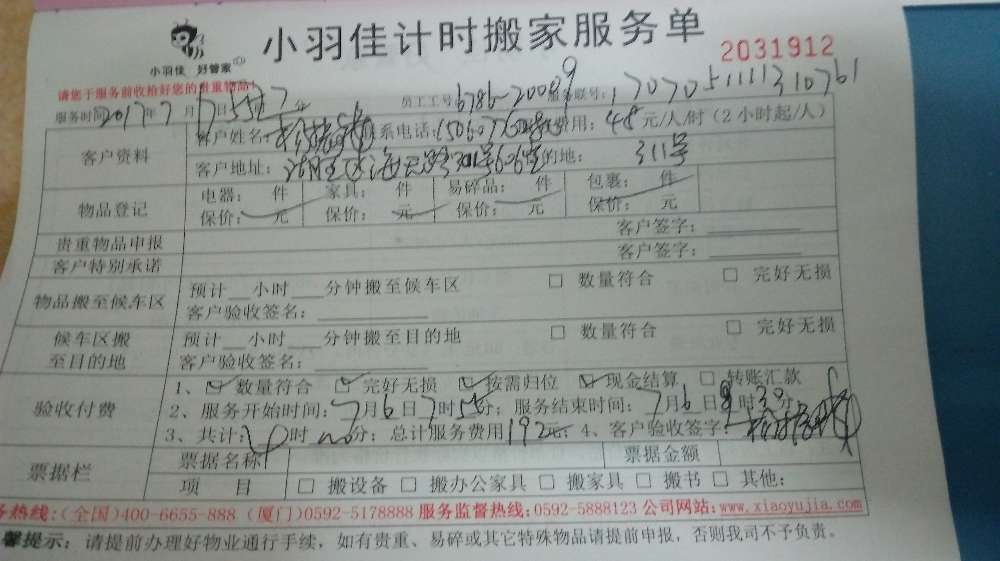 小羽佳 好管家
小羽佳计时搬家服务单
2031912
请您于服务前收捡好您的贵重物品!
服务时间2017年7月 日 分
员工工号:6786-20089 服务联号:
客户资料
客户姓名: 联系电话: 费用:48元/人/时(2小时起/人)
客户地址: 目的地: 311号
物品登记
电器: 件 家具: 件 易碎品: 件 包裹: 件
保价: 元 保价: 元 保价: 元 保价: 元
贵重物品申报 客户签字:
客户特别承诺 客户签字:
物品搬至候车区
预计__小时___分钟搬至候车区 □ 数量符合 □ 完好无损
客户验收签名:
候车区搬至目的地
预计__小时___分钟搬至目的地 □ 数量符合 □ 完好无损
客户验收签名:
验收付费
1、☑数量符合 ☑完好无损 ☑按需归位 ☑现金结算 □转账汇款
2、服务开始时间:7月6日7时55分;服务结束时间:7月6日 时30分
3、共计: 时 分;总计服务费用192元;4、客户验收签字:
票据栏
票据名称 票据金额
项 目 □ 搬设备 □ 搬办公家具 □ 搬家具 □ 搬书 □ 其他:
务热线:(全国)400-6655-888 (厦门)0592-5178888 服务监督热线:0592-5888123 公司网站:www.xiaoyujia.com
馨提示:请提前办理好物业通行手续,如有贵重、易碎或其它特殊物品请提前申报,否则我司不予负责。